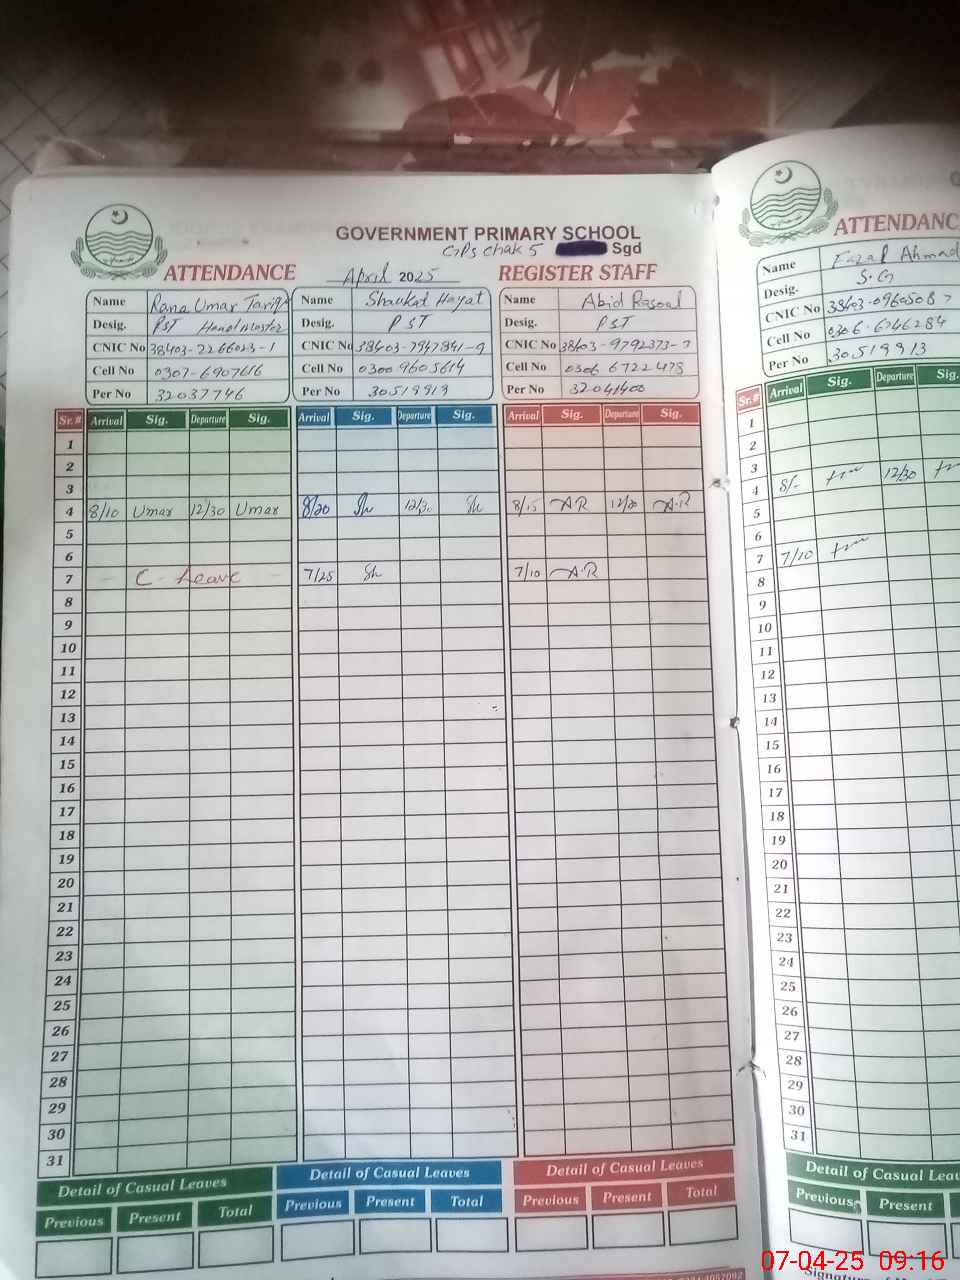 GOVERNMENT PRIMARY SCHOOL
GPs chak 5 Sgd
ATTENDANCE April 2025 REGISTER STAFF
Name Rana Umar Tariq Name Shaukat Hayat Name Abid Rasool
Desig. PST Head Master Desig. PST Desig. PST
CNIC No 38403-2266023-1 CNIC No 38403-7947841-9 CNIC No 38403-9792373-7
Cell No 0307-6907616 Cell No 0300 9605614 Cell No 0306 6722473
Per No 32037746 Per No 30519919 Per No 32041400
Sr.# Arrival Sig. Departure Sig. Arrival Sig. Departure Sig. Arrival Sig. Departure Sig.
1
2
3
4 8/10 Umar 12/30 Umar 8/20 Sh 12/30 Sh 8/15 A.R 12/30 A.R
5
6
7 C - Leave 7/25 Sh 7/10 A.R
8
9
10
11
12
13
14
15
16
17
18
19
20
21
22
23
24
25
26
27
28
29
30
31
Detail of Casual Leaves Detail of Casual Leaves Detail of Casual Leaves
Previous Present Total Previous Present Total Previous Present Total
ATTENDANC
Name Fazal Ahmad
Desig. S.G
CNIC No 38403-0960508-7
Cell No 0306-6746284
Per No 30519913
Sr.# Arrival Sig. Departure Sig.
1
2
3
4 8/- 12/30
5
6
7 7/10
8
9
10
11
12
13
14
15
16
17
18
19
20
21
22
23
24
25
26
27
28
29
30
31
Detail of Casual Lea
Previous Present
07-04-25 09:16